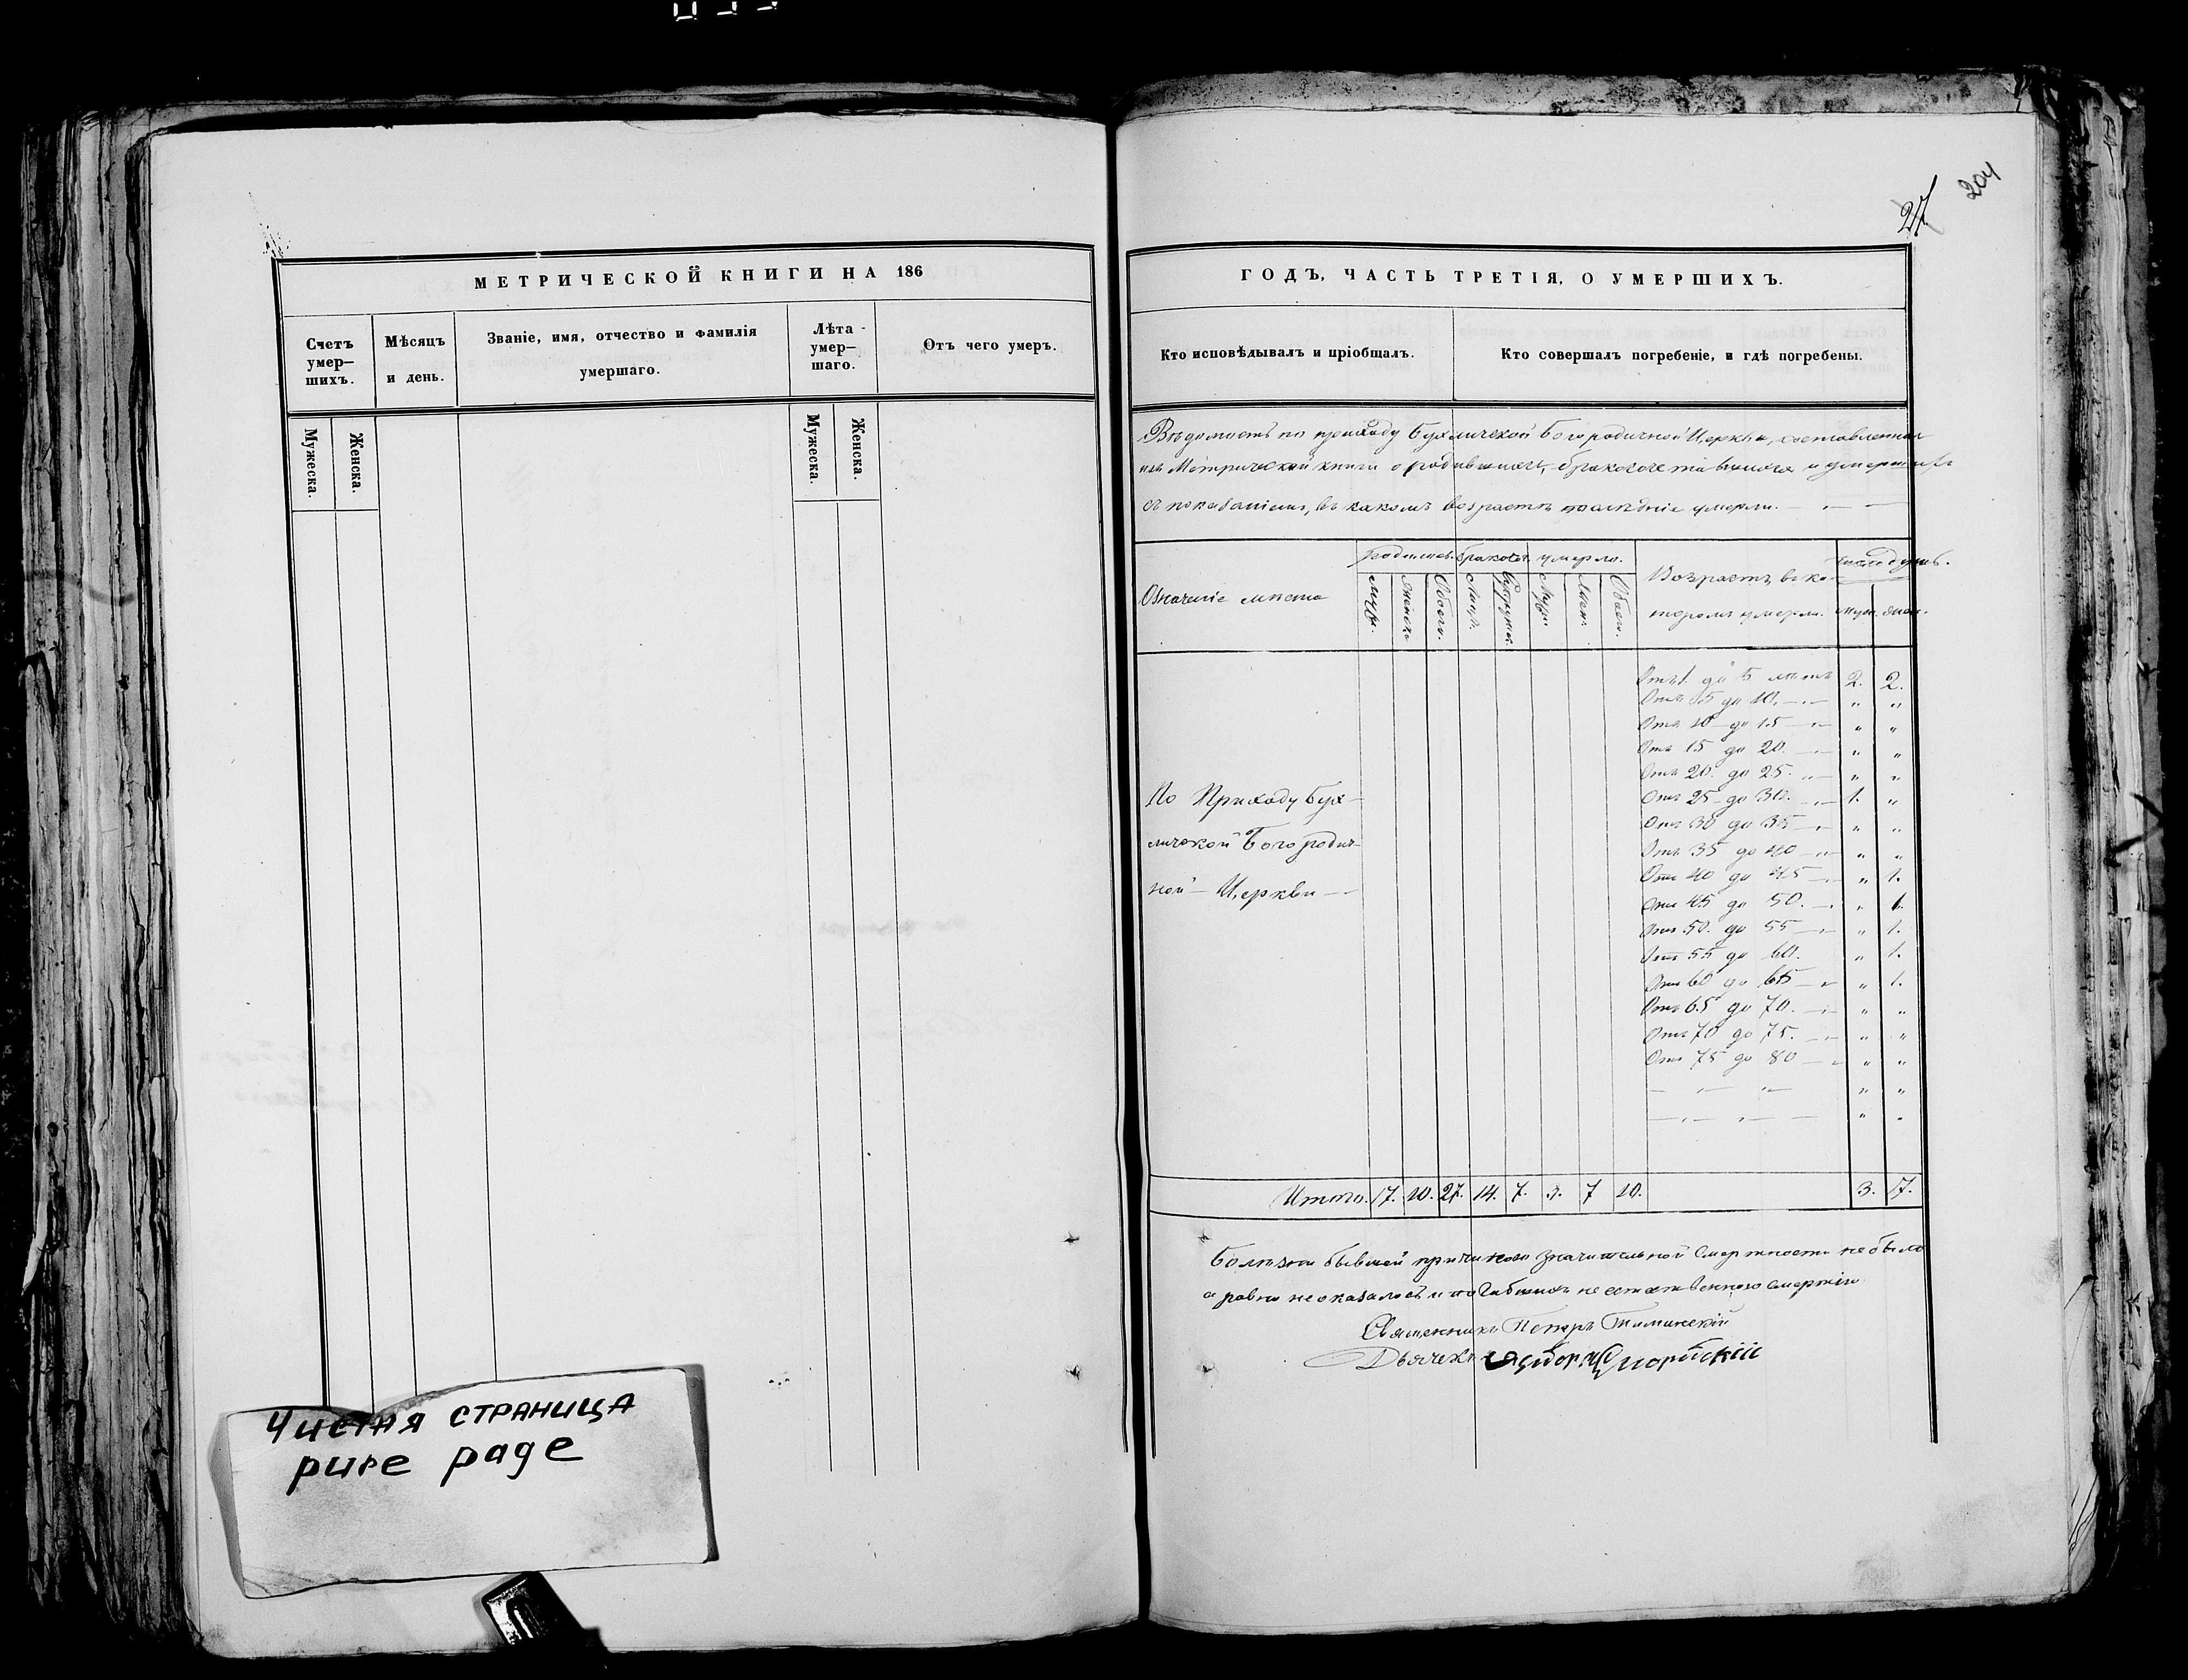 МЕТРИЧЕСКОЙ КНИГИ НА 186
Счетъ умер—шихъ.
Мѣсяцъ и день.
Званіе, имя, отчество и фамилія умершаго.
Лѣта умер—шаго.
Отъ чего умеръ.
Мужеска.
Женска.
Мужеска.
Женска.
Чистая страница
pure page
204
27
ГОДЪ, ЧАСТЬ ТРЕТІЯ, О УМЕРШИХЪ.
Кто исповѣдывалъ и пріобщалъ.
Кто совершалъ погребеніе, и гдѣ погребены.
Вѣдомость по приходу Бухличской Богородичной Церкви, составленная
изъ Метрической книги о родившихся, бракосочетавшихся и умершихъ
съ показаніемъ, въ какомъ возрастѣ послѣдніе умерли.
Означеніе мѣста
родилось.
браковъ
умерло.
Возрастъ, въ ко-
торомъ умерли.
Число душъ.
Муж.
Женск.
Обоего.
Муж.
Жен.
Обоего.
Муж.
Жен.
Отъ 1. до 5 лѣтъ 2. 2.
Отъ 5 до 10. " "
Отъ 10 до 15 " "
Отъ 15 до 20. " "
Отъ 20. до 25. " "
Отъ 25 до 30. 1. "
Отъ 30 до 35 " "
Отъ 35 до 40 " "
Отъ 40 до 45 " 1.
Отъ 45 до 50. " 1.
Отъ 50. до 55 " 1.
Отъ 55 до 60. " 1.
Отъ 60 до 65 " 1.
Отъ 65 до 70. " "
Отъ 70 до 75. " "
Отъ 75 до 80 " "
" "
" "
По Приходу Бух-
личской Богородич-
ной Церкви
Итого. 17. 10. 27. 14. 7. 3. 7 10. 3. 7.
Болѣзни бывшей причиною значительной смертности небыло
а равно неоказалось и погибшихъ неестественною смертію
Священникъ Петръ Томинскій
Дьячекъ